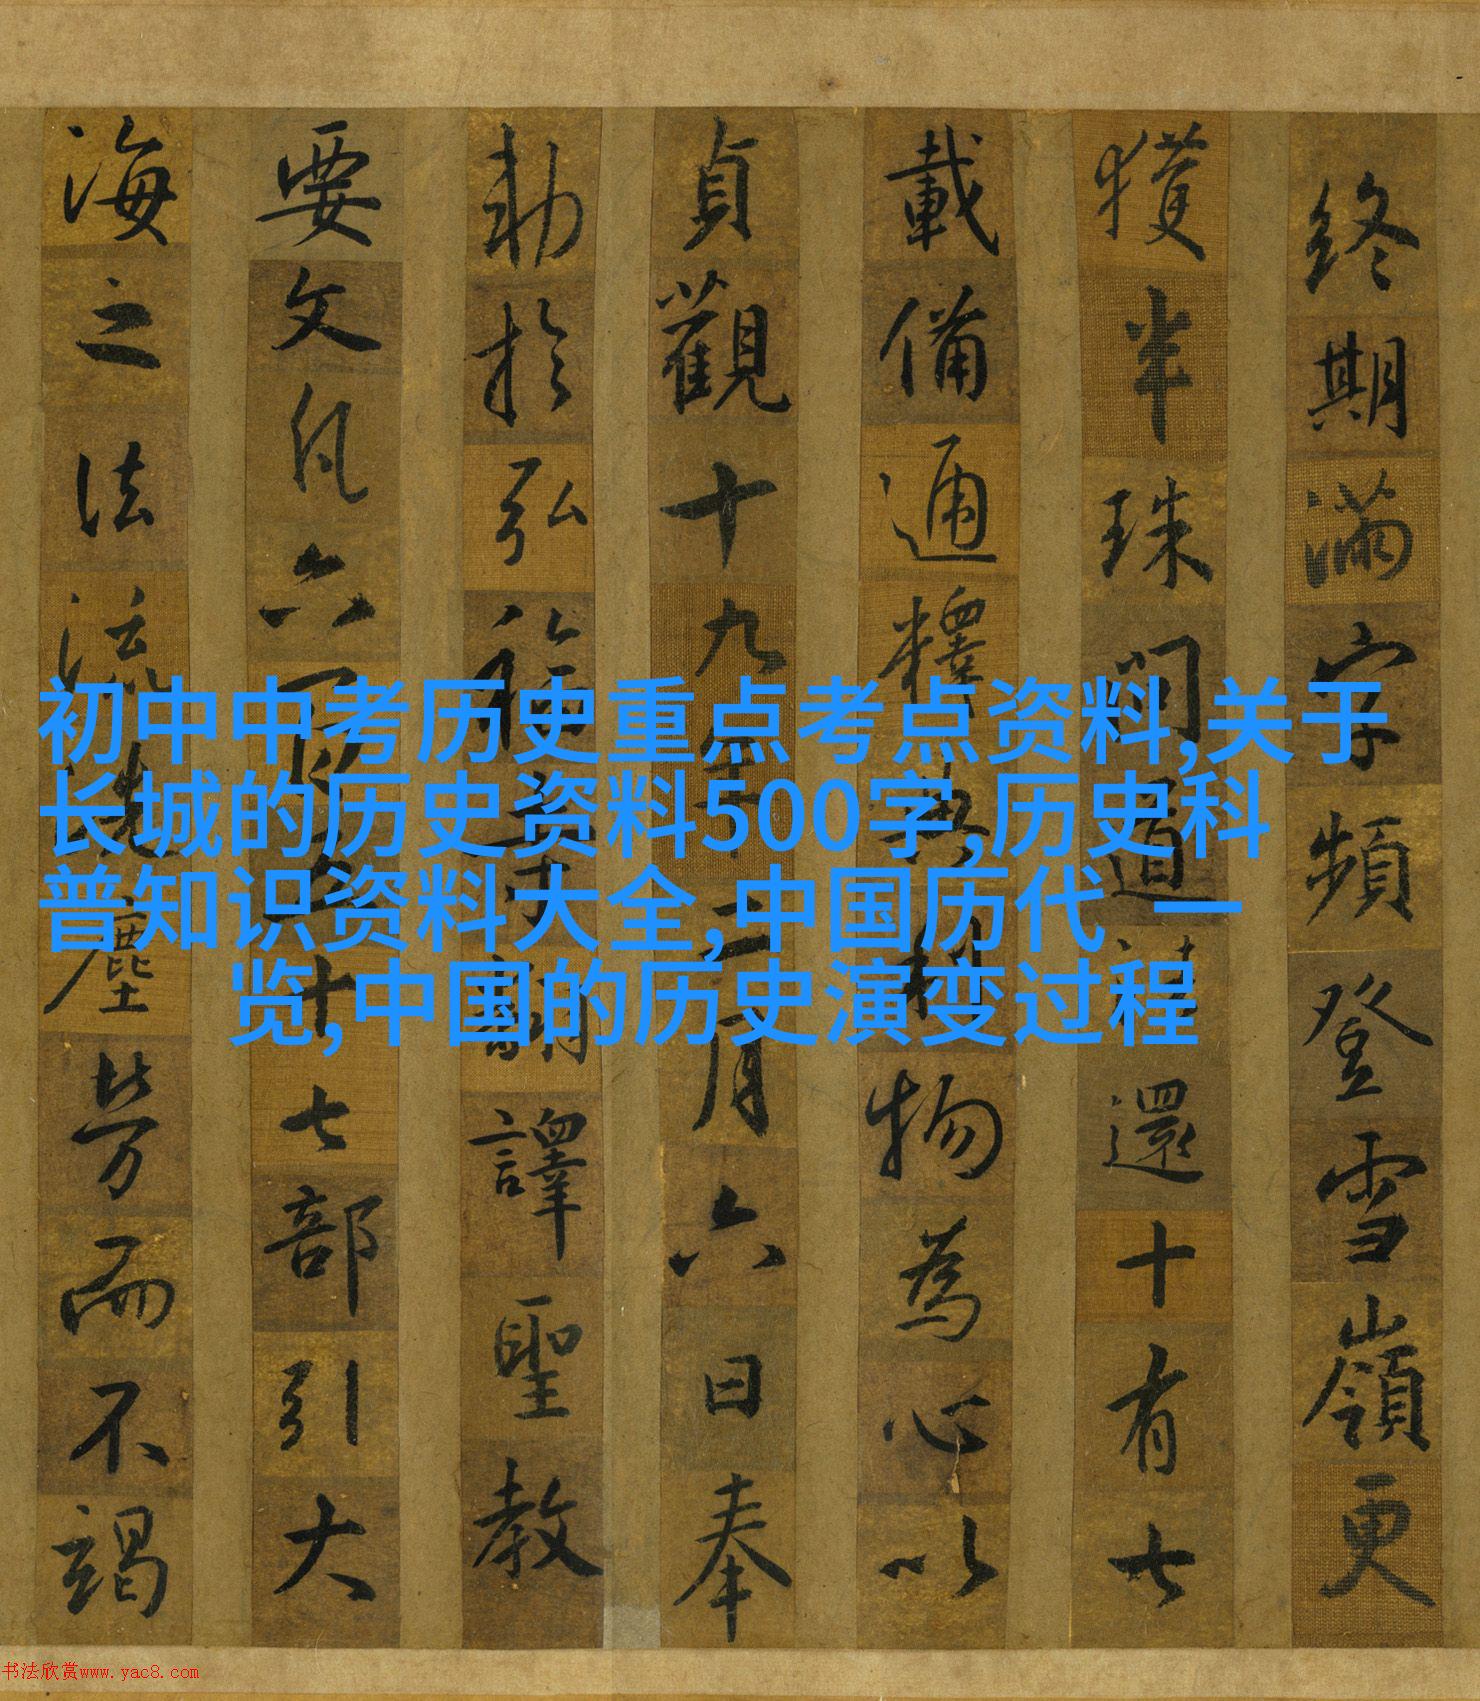 終期滿字頻登雪嶺更
獲半珠問道還十有七
載備通釋典利物為心以
貞觀十九年二月六日奉
勅於弘福寺翻譯聖教
要文凡六百五十七部引大
海之法流洗塵勞而不竭
初中中考历史重点考点资料,关于
长城的历史资料500字,历史科
普知识资料大全,中国历代 一
览,中国的历史演变过程
书法欣赏www.yac8.com